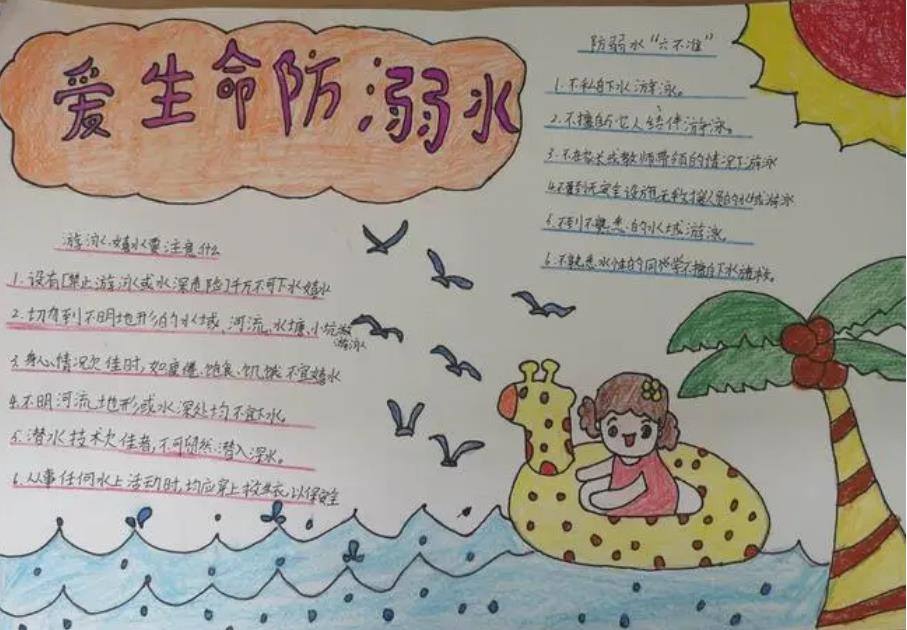 爱生命防溺水
防弱水“六不准”
1.不私自下水游泳。
2.不擅自与它人结伴游泳。
3.不在家长或教师带领的情况下游泳
4.不到无安全设施无救援人员的水域游泳
5.不到不熟悉的水域游泳。
6.不熟悉水性的同学不擅自下水施救。
游泳、嬉水要注意什么
1.设有[禁止游泳或水深危险]千万不可下水嬉水
2.切勿到不明地形的水域、河流、水塘、小坑
游泳
3.身心情况欠佳时,如疲倦、饱食、饥饿不宜嬉水
4.不明河流地形或水深处均不宜下水。
5.潜水技术欠佳者,不可贸然潜入深水。
6.从事任何水上活动时,均应穿上救生衣,以保安全